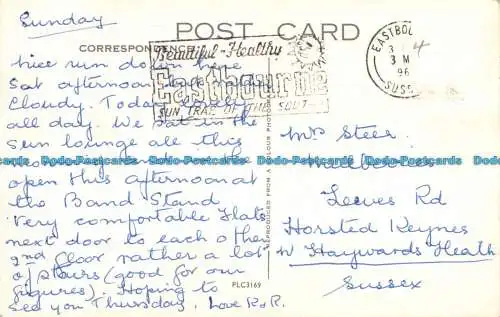 Sunday
POST CARD
CORRESPONDENCE
Beautiful - Healthy
Eastbourne
SUN TRAP OF THE SOUTH
EASTBO
3 M
96
SUSS
nice run down here
Sat afternoon
Cloudy. Today lovely
all day. We sat in the
sun lounge all this
open this afternoon at
the Band Stand
Very comfortable Flats
next door to each other
2nd floor rather a lot
of stairs (good for our
figures). Hoping to
see you Thursday. Love R & R.
Mrs Steer
Leewes Rd
Horsted Keynes
Nr Haywards Heath
Sussex
REPRODUCED FROM A COLOUR PHOTO
PLC3169
Dodo-Postcards Dodo-Postcards Dodo-Postcards Dodo-Postcards Dodo-Postcards